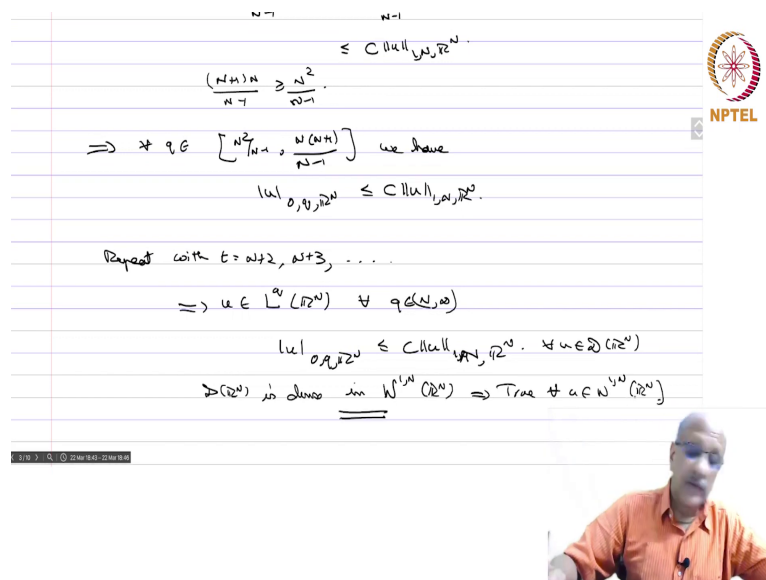 N-1 N-1
≤ C ||u||_{1,N,ℝ^N}.
(N+1)N/N-1 ≥ N²/N-1.
⟹ ∀ q ∈ [N²/N-1, N(N+1)/N-1] we have
|u|_{0,q,ℝ^N} ≤ C||u||_{1,N,ℝ^N}.
Repeat with t = N+2, N+3, .....
⟹ u ∈ L^q(ℝ^N) ∀ q ∈ (N,∞)
|u|_{0,q,ℝ^N} ≤ C||u||_{1,N,ℝ^N}. ∀ u ∈ 𝒟(ℝ^N)
𝒟(ℝ^N) is dense in W^{1,N}(ℝ^N) ⇒ True ∀ u ∈ W^{1,N}(ℝ^N)
NPTEL
3/10 22 Mar 18:43 - 22 Mar 18:46